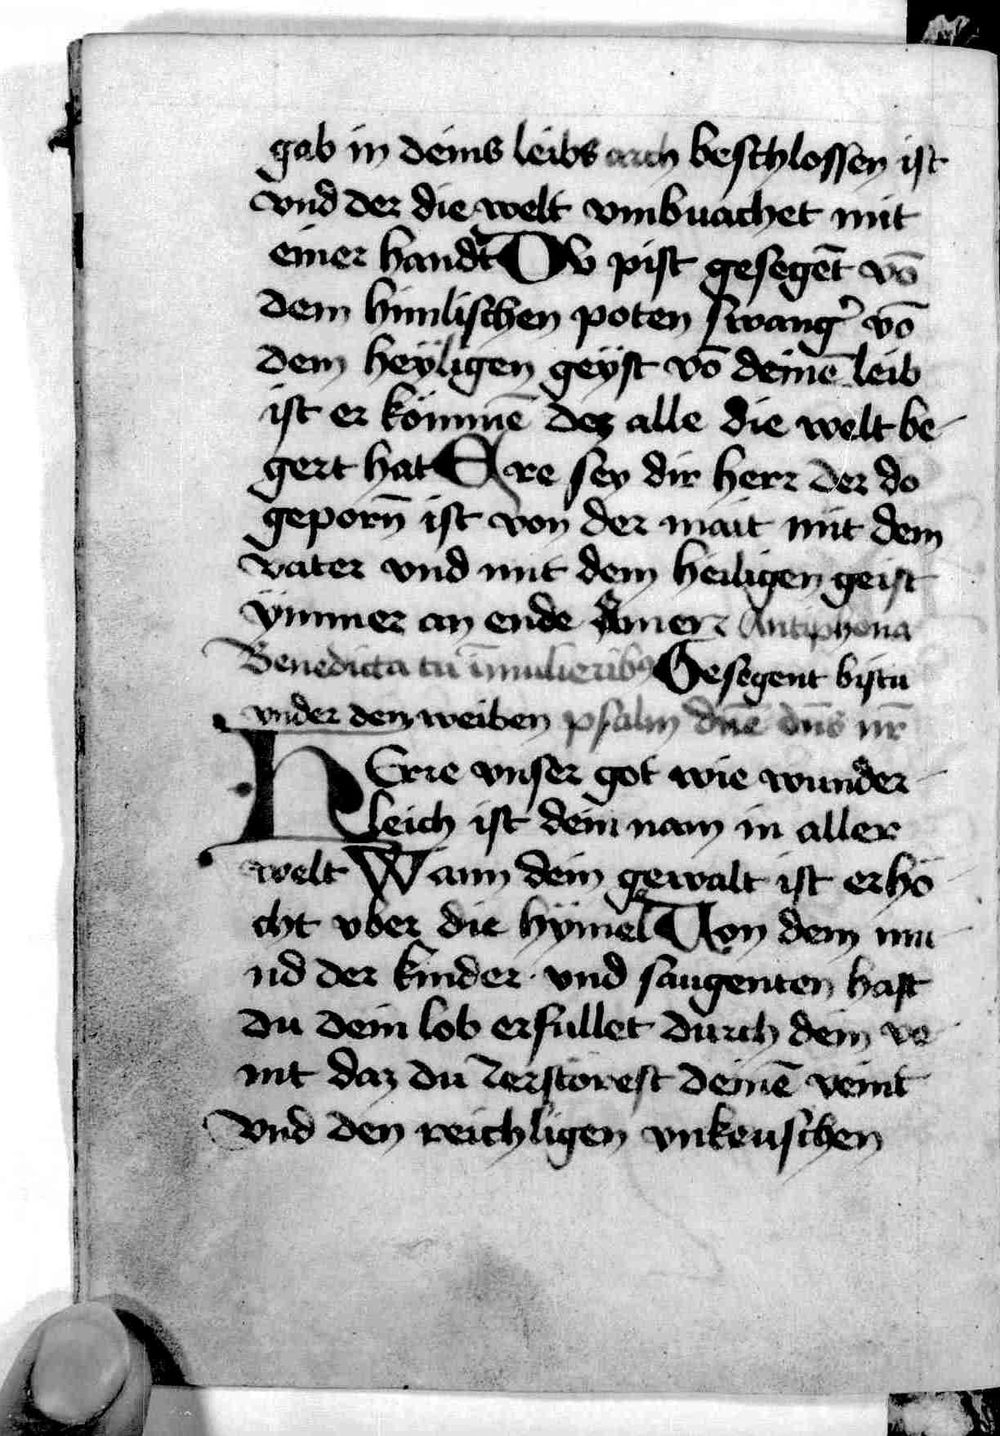 gab in deins leibs arch beschlossen ist
vnd der die welt vmbuachet mit
einer handt Dv pist gesegēt vō
dem himlischen poten swang᾽ vō
dem heÿligen geÿst vō deinē leib
ist er kömmē dez alle die welt be-
gert hat Ere sey dir herr der do
geporn̄ ist von der mait mit dem
vater vnd mit dem heiligen geist
ÿmmer an ende Amen Antiphona
Benedicta tu ī mulieribꝫ Gesegent bistu
vnder den weiben psalm dn̄e dn̄s nr̄
HErre vnser got wie wunder-
leich ist dein nam in aller
welt Wann dein gewalt ist erhö-
cht vber die hÿmel Von dem mu-
nd der kinder vnd saugenten hast
du dein lob erfullet durch dein ve-
int daz du zerstörest deinē veint
vnd den reichligen vnkeuschen